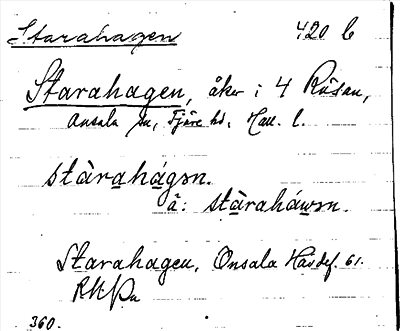 Starahagen 420 b
Starahagen, åker i 4 Rösan,
Onsala sn, Fjäre hd, Hall. l.
stàrahágən.
ä: stàraháwən.
Starahagen, Onsala Havdef. 61.
360.